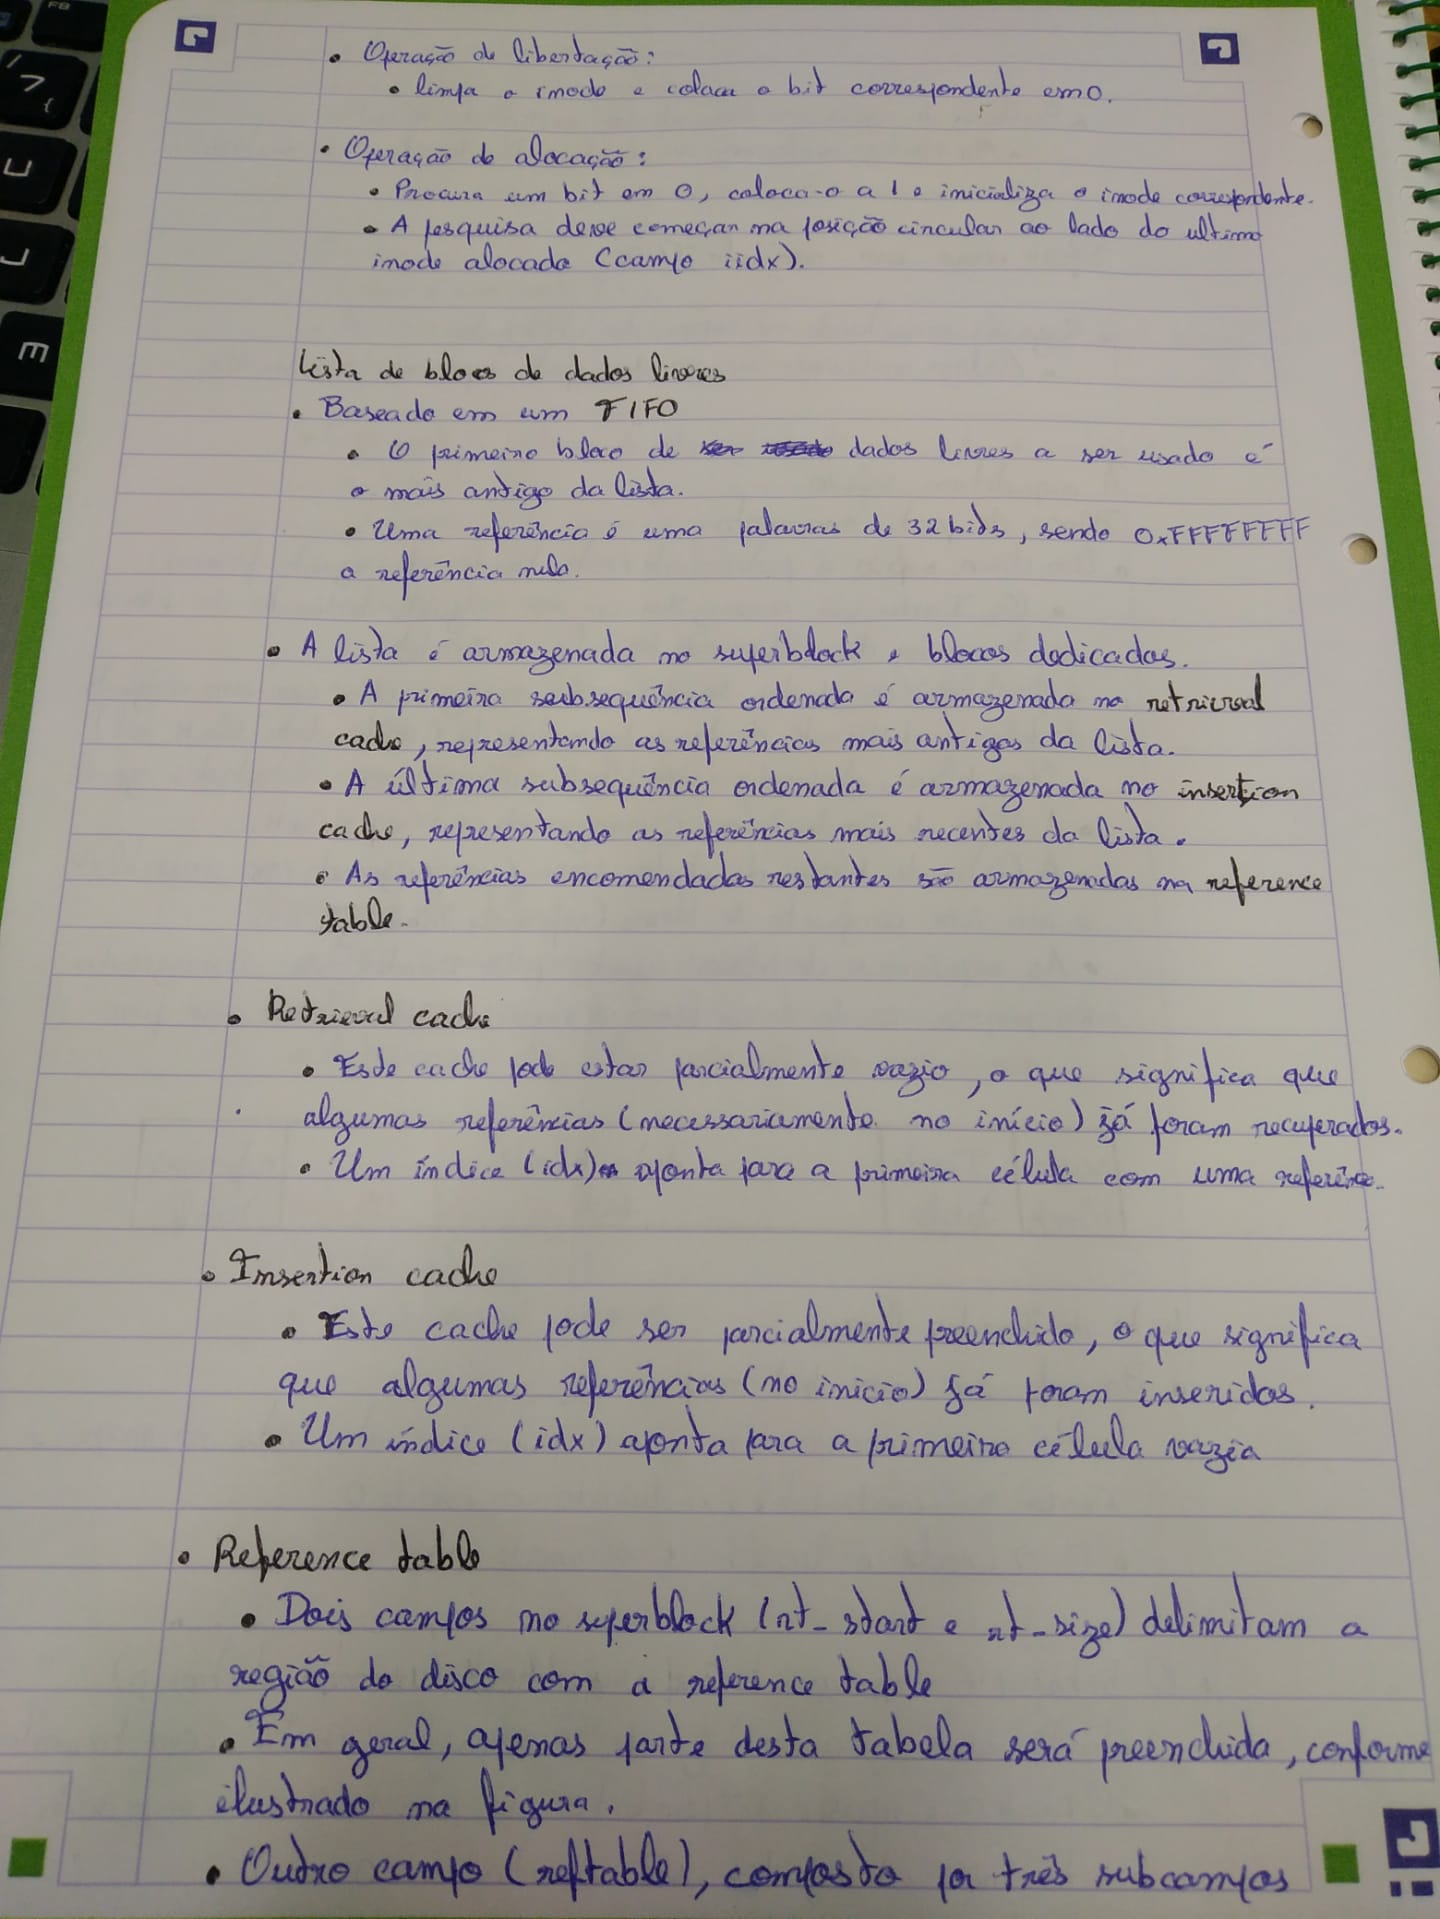 • Operação de libertação:
• limpa o inode e coloca o bit correspondente em 0.
• Operação de alocação:
• Procura um bit em 0, coloca-o a 1 e inicializa o inode correspondente.
• A pesquisa deve começar na posição circular ao lado do ultimo
inode alocado (campo iidx).
Lista de blocos de dados livres
• Baseado em um FIFO
• O primeiro bloco de dados livres a ser usado é
o mais antigo da lista.
• Uma referência é uma palavras de 32 bits, sendo 0xFFFFFFFF
a referência nula.
• A lista é armazenada no superblock e blocos dedicados.
• A primeira subsequência ordenada é armazenada no retrieval
cache, representando as referências mais antigas da lista.
• A última subsequência ordenada é armazenada no insertion
cache, representando as referências mais recentes da lista.
• As referências encomendadas restantes são armazenadas na reference
table.
• Retrieval cache
• Este cache pode estar parcialmente vazio, o que significa que
algumas referências (necessariamente no início) já foram recuperados.
• Um índice (idx) aponta para a primeira célula com uma referência.
• Insertion cache
• Este cache pode ser parcialmente preenchido, o que significa
que algumas referências (no inicio) já foram inseridos.
• Um índice (idx) aponta para a primeira célula vazia
• Reference table
• Dois campos no superblock (rt_start e rt_size) delimitam a
região do disco com a reference table
• Em geral, apenas parte desta tabela será preenchida, conforme
ilustrado na figura.
• Outro campo (reftable), composto por três subcampos